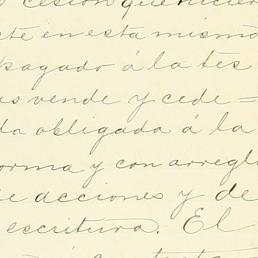 cesión que hicier
te en esta misma
pagado á la tes
as vende y cede =
da obligada á la
orma y con arregl
e acciones y de
escritura. El